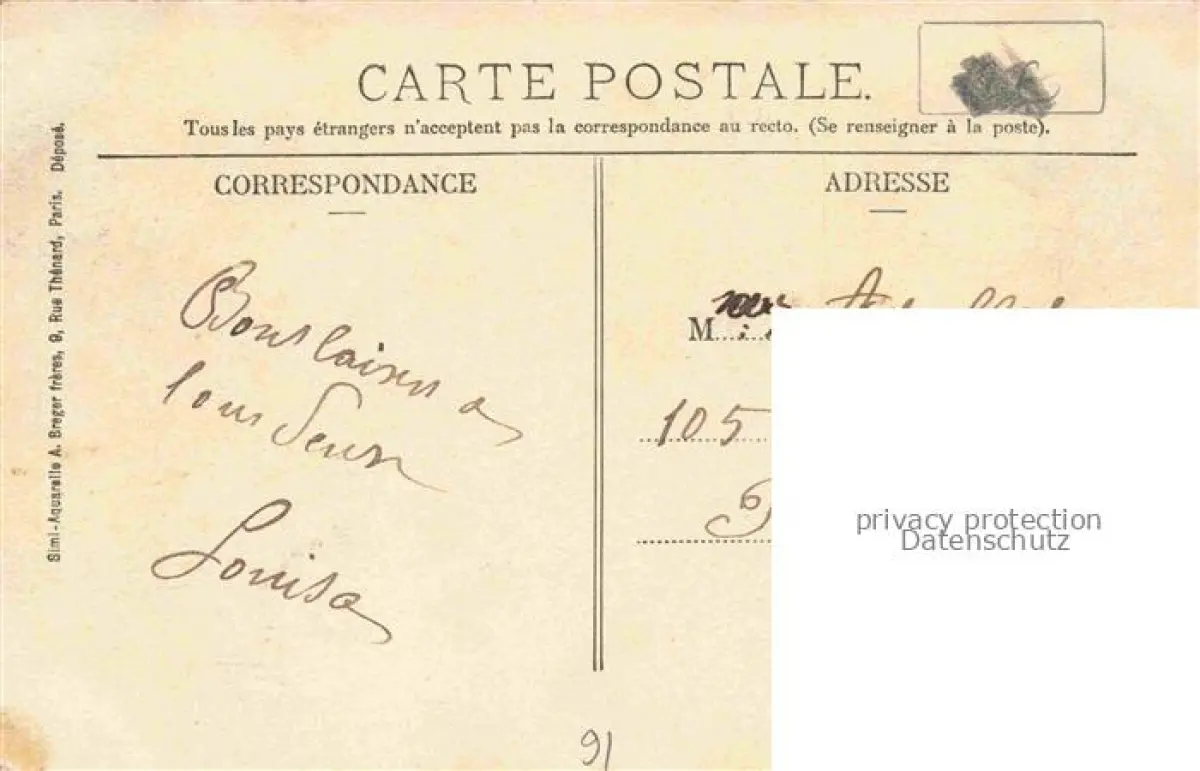 CARTE POSTALE.
Tous les pays étrangers n'acceptent pas la correspondance au recto. (Se renseigner à la poste).
CORRESPONDANCE
ADRESSE
Simi-Aquarelle A. Breger frères, 9, Rue Thénard, Paris. Déposé.
a
Louisa
M
105
privacy protection
Datenschutz
91